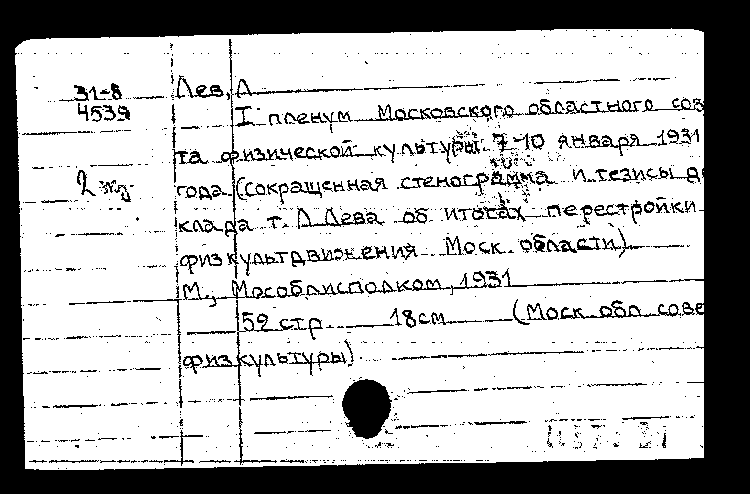 31-8
4539
2 экз.
Лев, Л
I пленум Московского областного сов
та физической культуры 7-10 января 1931
года (сокращенная стенограмма и тезисы до
клада т. Л Лева об итогах перестройки
физкультдвижения Моск. области)
М., Мособлисполком, 1931
52 стр 18см (Моск обл. сове
физкультуры)